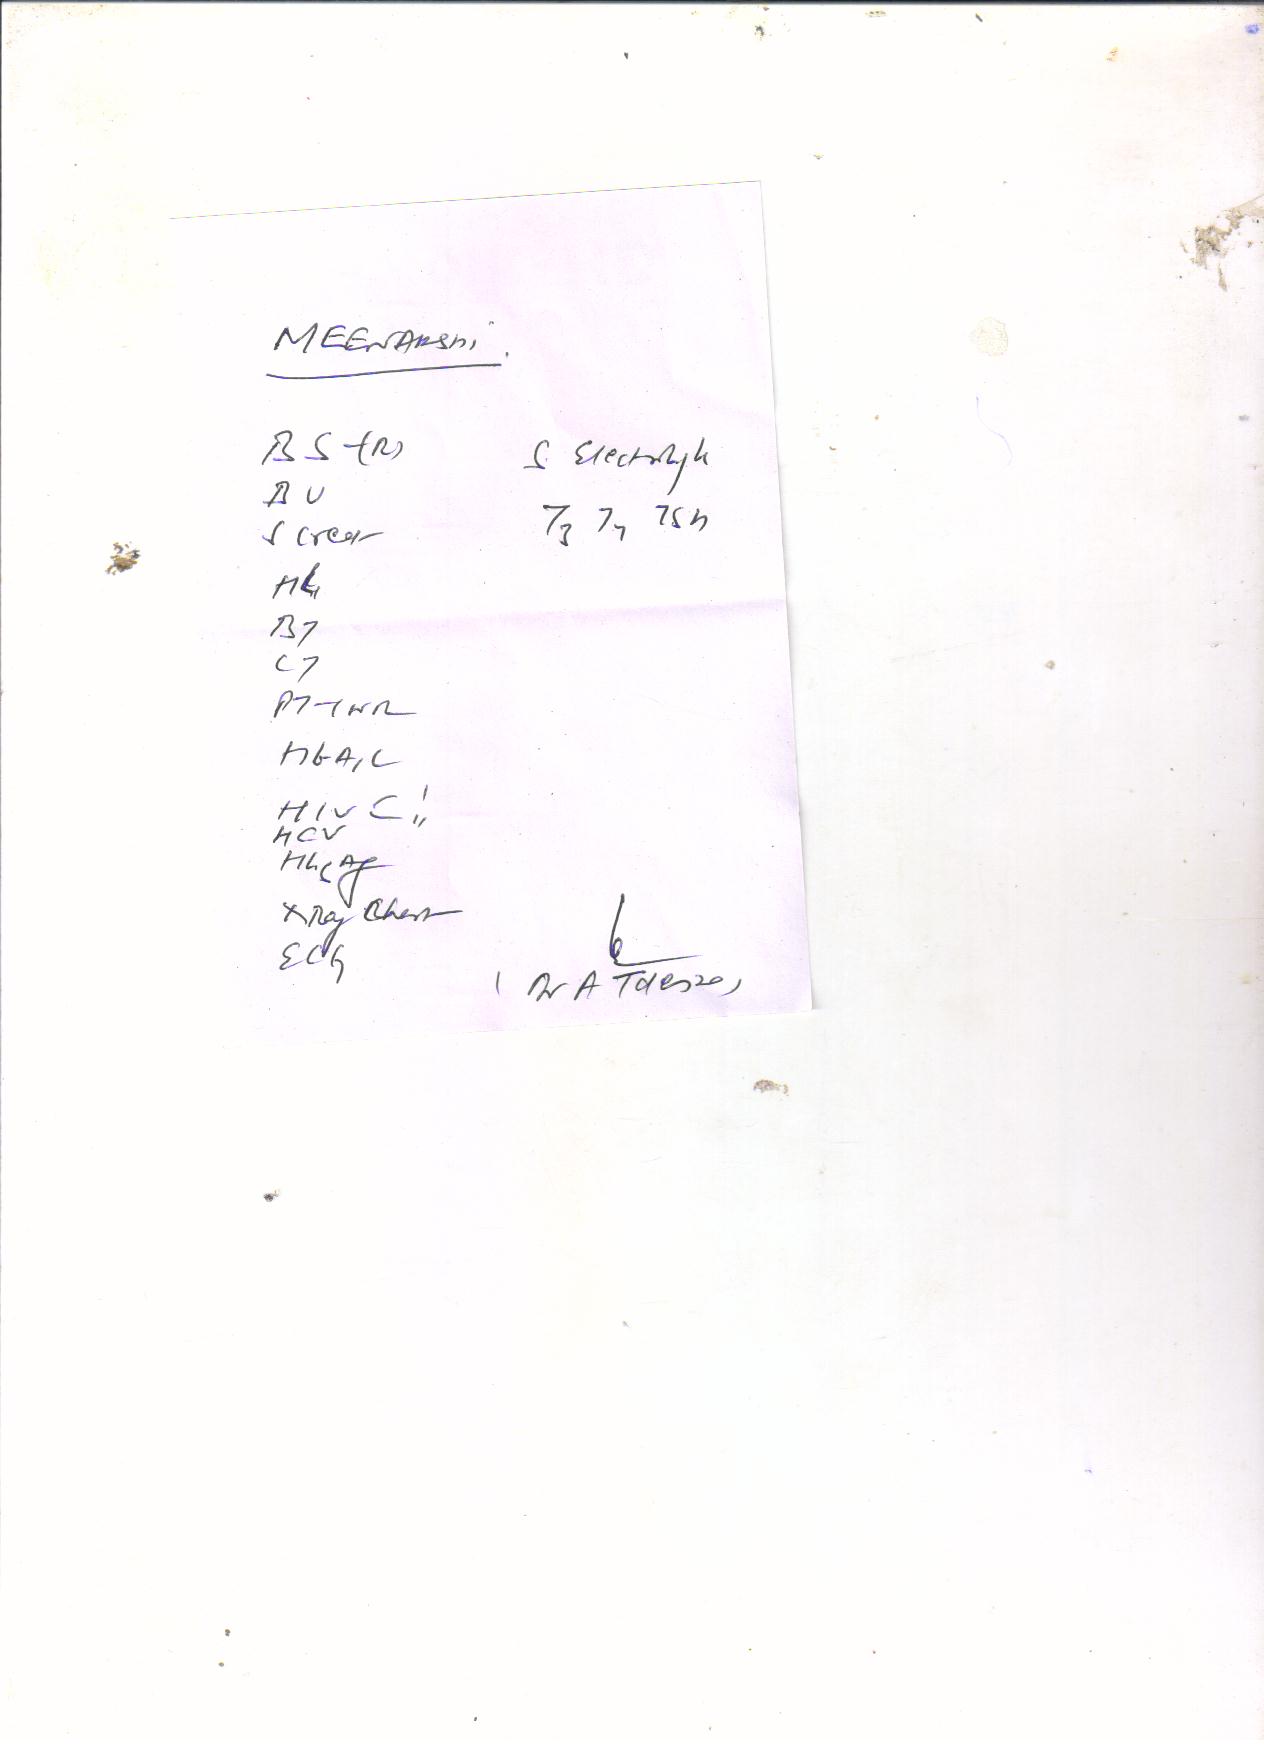 MEENAKSHI
BS (R)
BU
S Creat
Hb
BT
CT
PT-INR
HbA1C
HIV C!!
HCV
HbsAg
X Ray Chest
ECG
S Electrolyte
T3 T4 TSH
Dr A